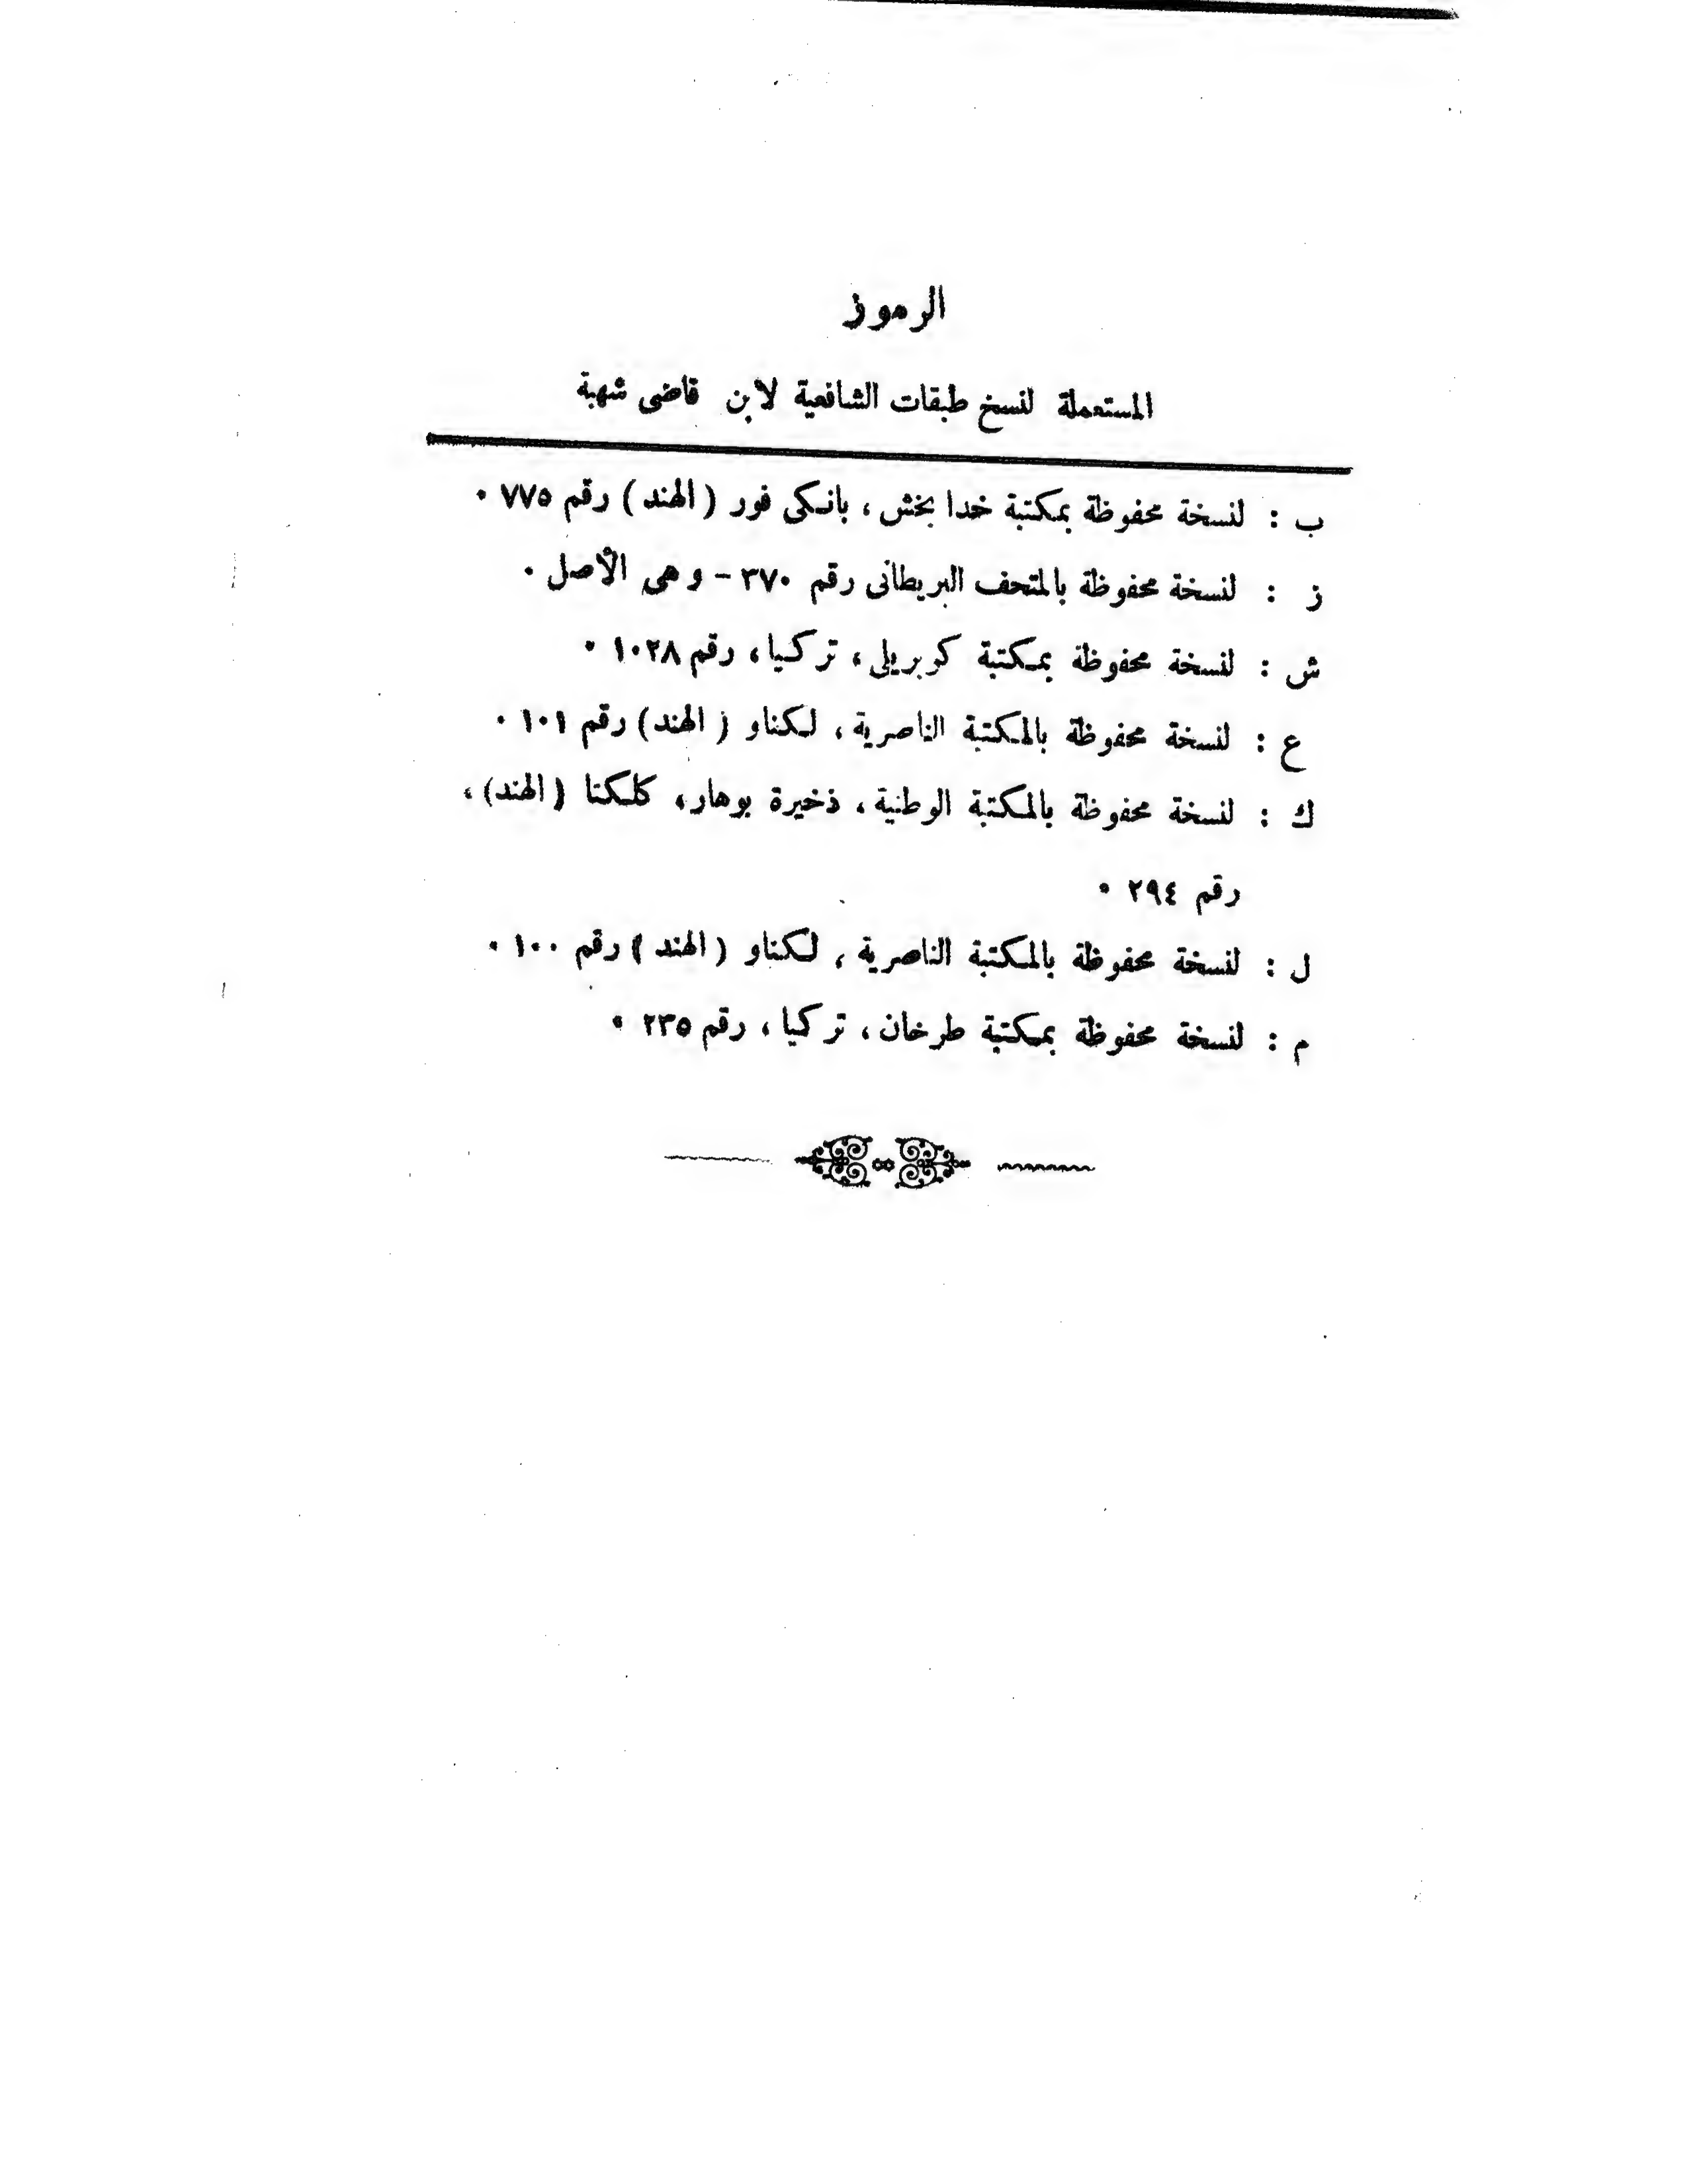 الرموز
المستعملة لنسخ طبقات الشافعية لابن قاضى شهبة
ب : لنسخة محفوظة بمكتبة خدا بخش ، بانكى فور ( الهند ) رقم ٧٧٥ ٠
ز : لنسخة محفوظة بالمتحف البريطانى رقم ٣٧٠ – و هى الأصل ٠
ش : لنسخة محفوظة بمكتبة كوبريلى ، تركيا ، رقم ١٠٢٨ ٠
ع : لنسخة محفوظة بالمكتبة الناصرية ، لكناو ( الهند ) رقم ١٠١ ٠
ك : لنسخة محفوظة بالمكتبة الوطنية ، ذخيرة بوهار ، كلكتا ( الهند ) ،
رقم ٢٩٤ ٠
ل : لنسخة محفوظة بالمكتبة الناصرية ، لكناو ( الهند ) رقم ١٠٠ ٠
م : لنسخة محفوظة بمكتبة طرخان ، تركيا ، رقم ٢٣٥ ٠